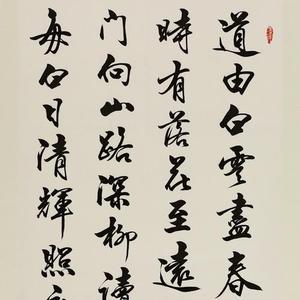 道由白雲盡春
時有落花至遠
門向山路深柳讀
每白日清輝照